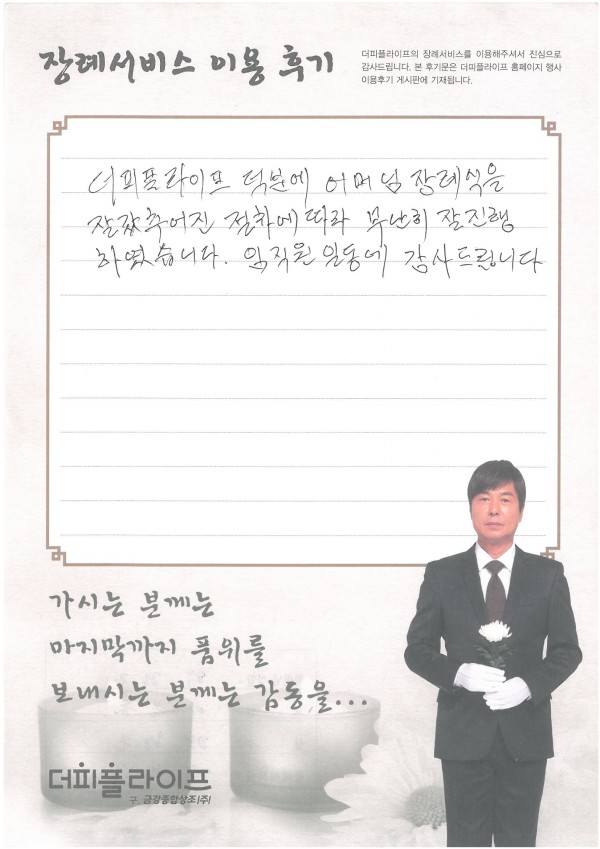 장례서비스 이용 후기
더피플라이프의 장례서비스를 이용해주셔서 진심으로
감사드립니다. 본 후기문은 더피플라이프 홈페이지 행사
이용후기 게시판에 기재됩니다.
더피플라이프 덕분에 어머님 장례식을
잘갖추어진 절차에따라 무난히 잘진행
하였습니다. 임직원 일동에 감사드립니다
가시는 분께는
마지막까지 품위를
보내시는 분께는 감동을...
더피플라이프
구. 금강종합상조(주)